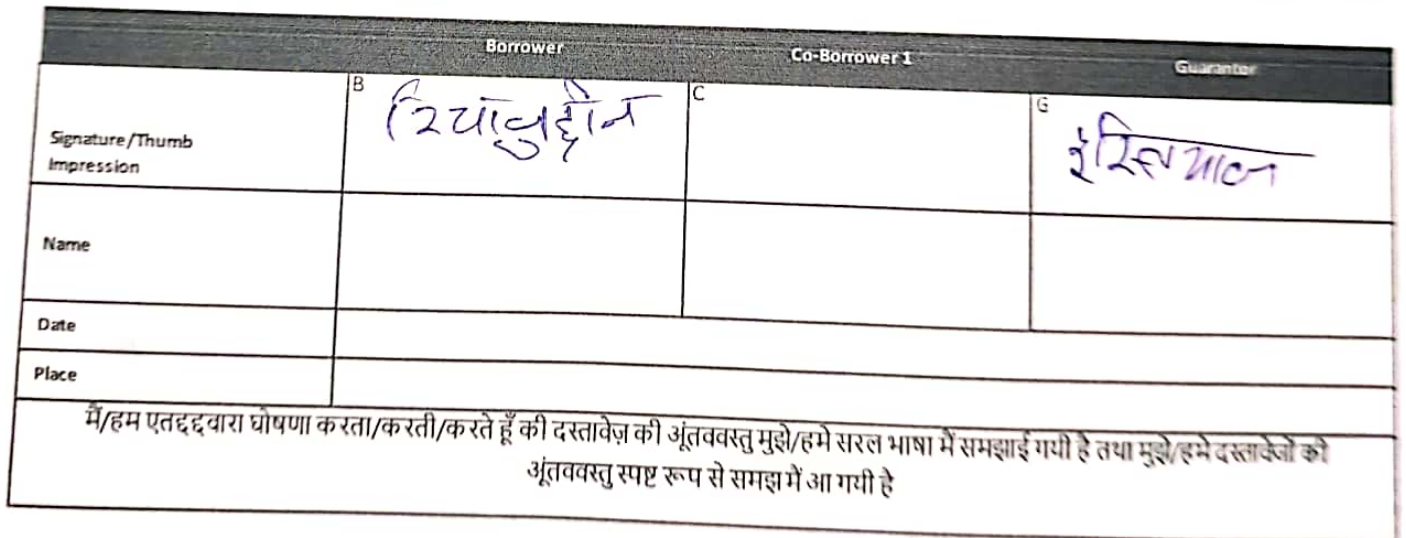 Borrower Co-Borrower 1 Guarantor
Signature/Thumb Impression B रियाजुद्दीन C G
Name
Date
Place
मैं/हम एतद्दद्दवारा घोषणा करता/करती/करते हूँ की दस्तावेज़ की अूंतववस्तु मुझे/हमे सरल भाषा में समझाई गयी है तथा मुझे/हमे दस्तावेजों की
अूंतववस्तु स्पष्ट रूप से समझ में आ गयी है